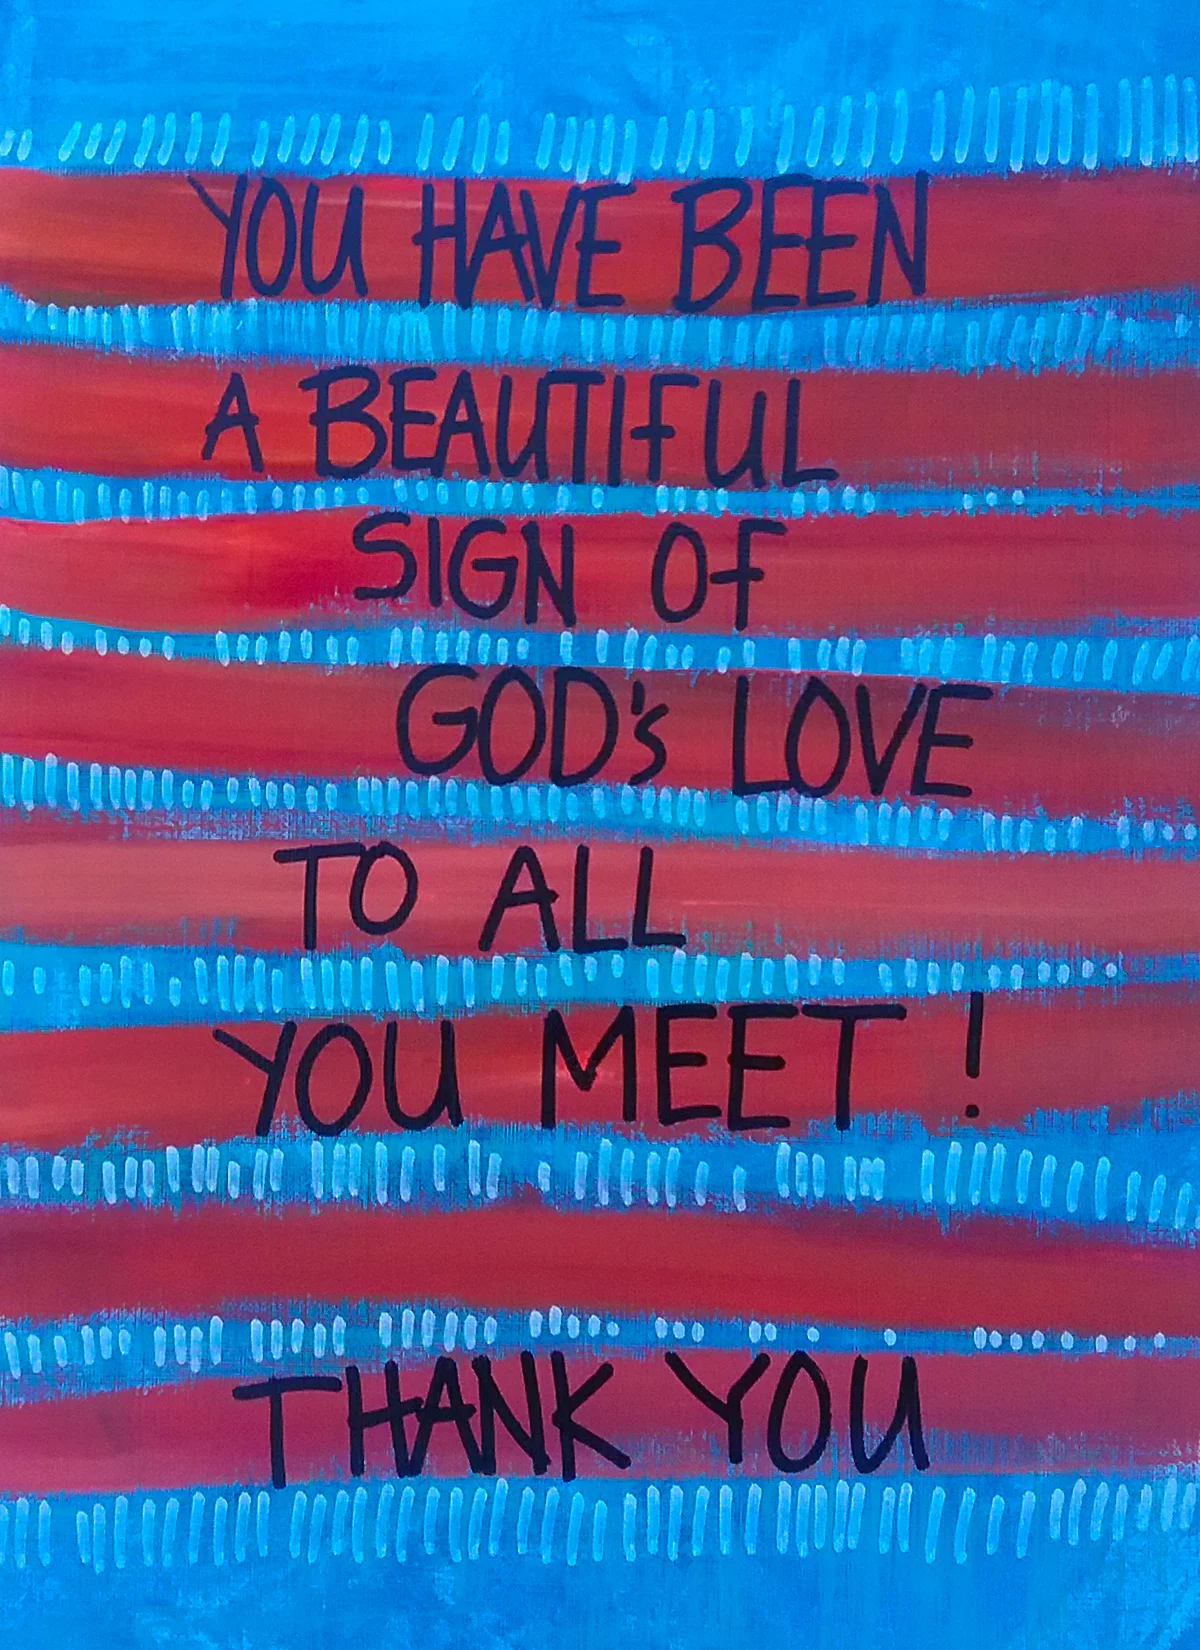 YOU HAVE BEEN
A BEAUTIFUL
SIGN OF
GOD's LOVE
TO ALL
YOU MEET !
THANK YOU